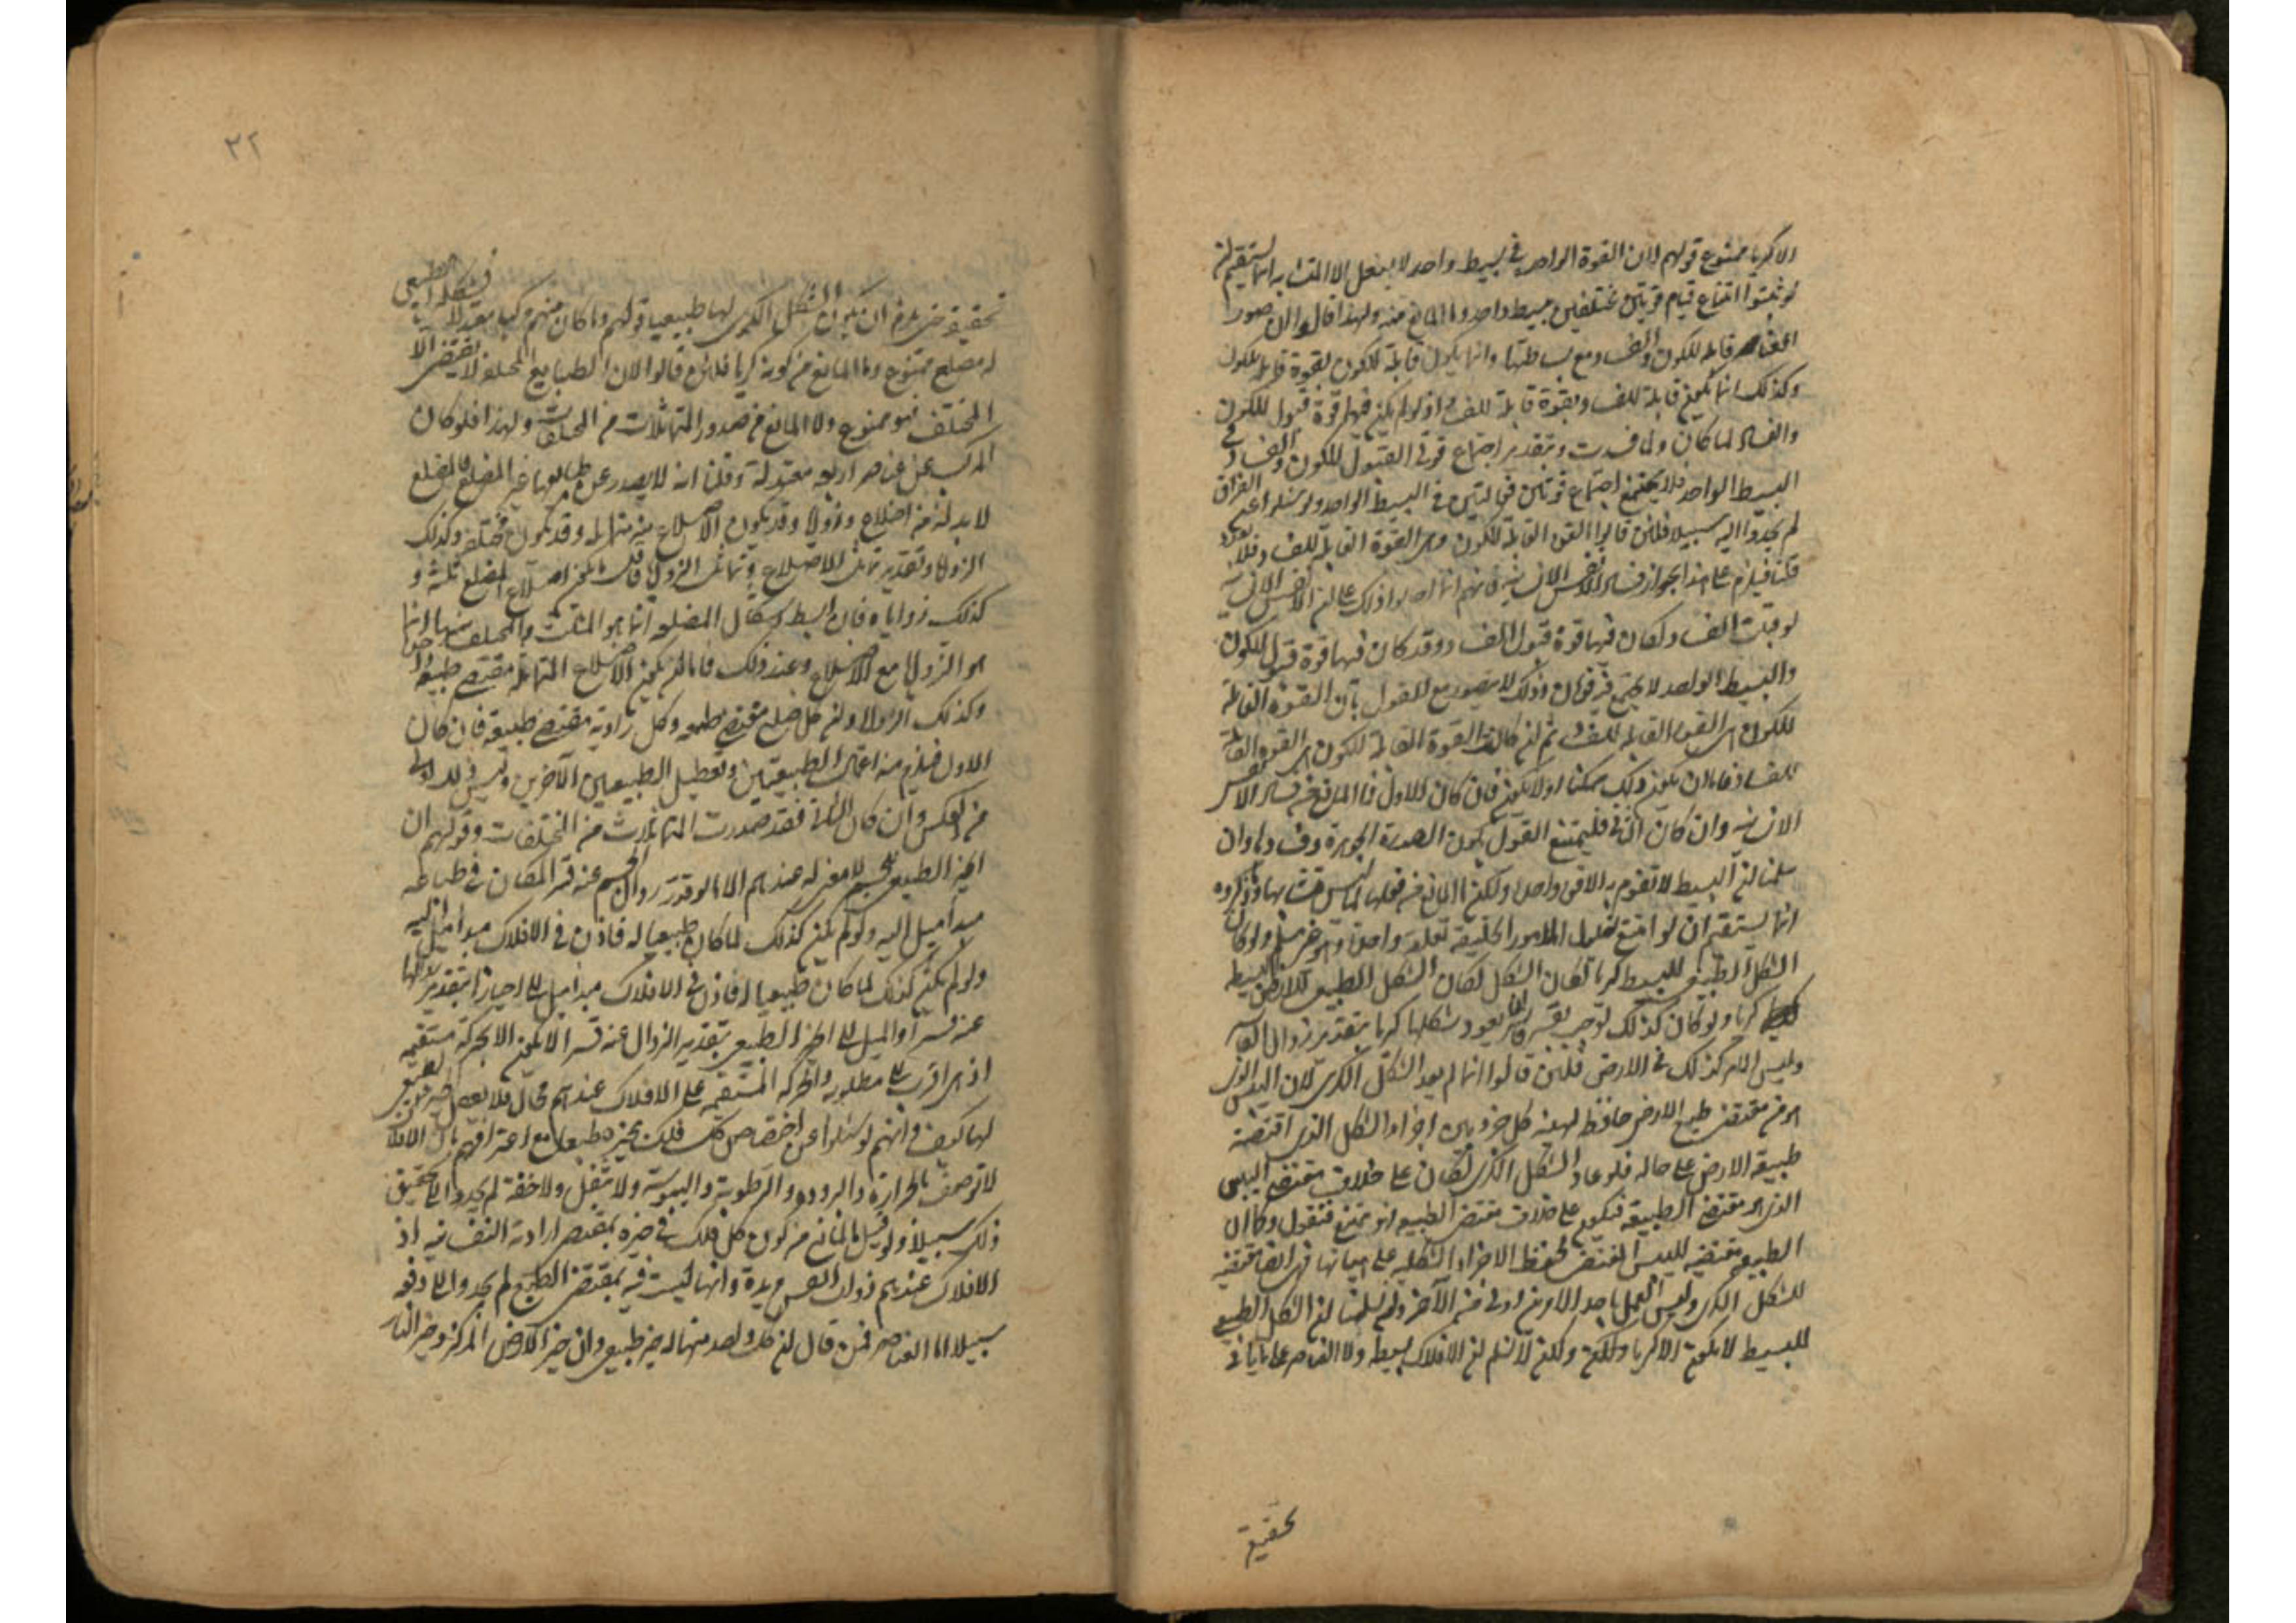 الا كريا ممنوع قولهم لان القوة الواحدة في بسيط واحد لا يفعل الا المتشابه انما يستقيم لن
لو ثبتوا امتناع قيام قوتين مختلفتين ببسيط واحد وما المانع منه ولهذا قالوا ان صور
العناصر قابلة للكون والفساد مع بساطتها وانما يكون قابلة للكون بقوة قابلة للكون
وكذلك انما يكون قابلة للفساد بقوة قابلة للفساد اذ لو لم يكن فيها قوة قبول للكون
والفساد لما كان ولما فسدت وبتقدير اجتماع قوتي القبول للكون والفساد في
البسيط الواحد فلا يمتنع اجتماع قوتين فعاليتين في البسيط الواحد ولو سئلوا عن الفراق
لم يجدوا اليه سبيلا فلئن قالوا القوة القابلة للكون هي القوة القابلة للفساد فلا تعدد
قلنا فيلزم على هذا جواز فساد الانفس الانسانية فانهم انما احالوا ذلك على ان الانفس الانسانية
لو قبلت الفساد لكان فيها قوة قبول الفساد وقد كان فيها قوة قبول للكون
والبسيط الواحد لا يجتمع فيه قوتان وذلك لا يتصور مع القول بان القوة القابلة
للكون هي القوة القابلة للفساد ثم لئن كانت القوة القابلة للكون هي القوة القابلة
للفساد فاما ان يكون ذلك ممكنا او لا يكون فان كان الاول فما المانع من فساد الانفس
الانسانية وان كان الثاني فليمتنع القول بكون الصورة الجوهرية وفسادها وان
سلمنا لن البسيط لا تقوم به الا قوة واحدة ولكن ما المانع من فعلها لما ليس متشابها وما ذكروه
انما يستقيم ان لو امتنع تعليل الامور المختلفة بعلة واحدة وهو غير مسلم ولو كان
الشكل الطبيعي للبسيط كريا لكان الشكل الطبيعي للارض البسيطة
كريا ولو كان كذلك لوجب بقسر قاسر لها يعود شكلها كريا بتقدير زوال القاسر
وليس الامر كذلك في الارض فلئن قالوا انما لم يعد الشكل الكري لان اليبس الذي
هو من مقتضى طبع الارض حافظ لهيئة كل جزء من اجزاء الشكل الذي اقتضته
طبيعة الارض على حاله فلو عاد الشكل الكري لكان على خلاف مقتضى اليبس
الذي هو مقتضى الطبيعة فيكون على خلاف مقتضى الطبيعة وهو ممتنع فنقول وكما ان
الطبيعة مقتضية لليبس المقتضي لحفظ الاجزاء الشكلية على هيئاتها فهي ايضا مقتضية
للشكل الكري وليس العمل باحد الامرين اولى من الآخر ولئن سلمنا لن الشكل الطبيعي
للبسيط لا يكون الا كريا ولكن لا نسلم لن الافلاك بسيطة ولا العناصر على ما ياتي في
تحقيق
٣٢
تحقيقه حتى يلزم ان يكون الشكل الكري لها طبيعيا قولهم وما كان منهم مركبا معتدلا فشكله الطبيعي
له مضلع ممنوع وما المانع من كونه كريا فلئن قالوا لان الطبايع المختلفة لا يقتضي الا
المختلف فهو ممنوع وما المانع من صدور المتماثلات من المختلفات ولهذا فلو كان
المركب عن عناصر اربعة معتدلة وقلنا انه لا يصدر عن طبايعها غير المضلع فالمضلع
لا بد له من اضلاع وزوايا وقد يكون الاضلاع منه متماثلة وقد يكون مختلفة وكذلك
الزوايا وبتقدير تماثل الاضلاع وتماثل الزوايا فاقل ما يكون اضلاع المضلع ثلثة و
كذلك زواياه فان ابسط اشكال المضلعة انما هو المثلث والمختلف منها انما
هو الزوايا مع الاضلاع وعند ذلك فاما لن يكون الاضلاع المتماثلة مقتضى طبيعة واحدة
وكذلك الزوايا ولن كل ضلع مقتضى طبيعة وكل زاوية مقتضى طبيعة فان كان
الاول فيلزم منه اعمال الطبيعتين وتعطيل الطبيعتين الآخرين وليس ذلك اولى
من العكس وان كان الثاني فقد صدرت المتماثلات من المختلفات وقولهم ان
الحيز الطبيعي للجسم لا معنى له عندهم الا ما لو قدر زوال الجسم عنه قسرا لكان في طباعه
مبدأ ميل اليه ولو لم يكن كذلك لما كان طبيعيا له فاذن في الافلاك مبدأ ميل اليه
ولو لم يكن كذلك لما كان طبيعيا له فاذن في الافلاك مبدأ ميل الى احيازها بتقدير زوالها
عنه قسرا والميل الى الحيز الطبيعي بتقدير الزوال عنه قسرا لا يكون الا بحركة مستقيمة
اذ هي اقرب الى مطلوبه والحركة المستقيمة على الافلاك عندهم محال فلا يعقل حيز طبيعي
لها كيف وانهم لو سئلوا عن اختصاص كل فلك بحيزه طبيعيا مع اعترافهم بان الافلاك
لا توصف بالحرارة والبرودة والرطوبة واليبوسة ولا بثقل ولا خفة لم يجدوا الى تحقيق
ذلك سبيلا ولو قيل ما المانع من كون كل فلك في حيزه بمقتضى ارادته النفسانية اذ
الافلاك عندهم ذوات انفس مريدة وانها ليست فيه بمقتضى الطبع لم يجدوا الى دفعه
سبيلا اما العناصر فمن قال لن كل واحد منها له حيز طبيعي وان حيز الارض المركز وحيز النار